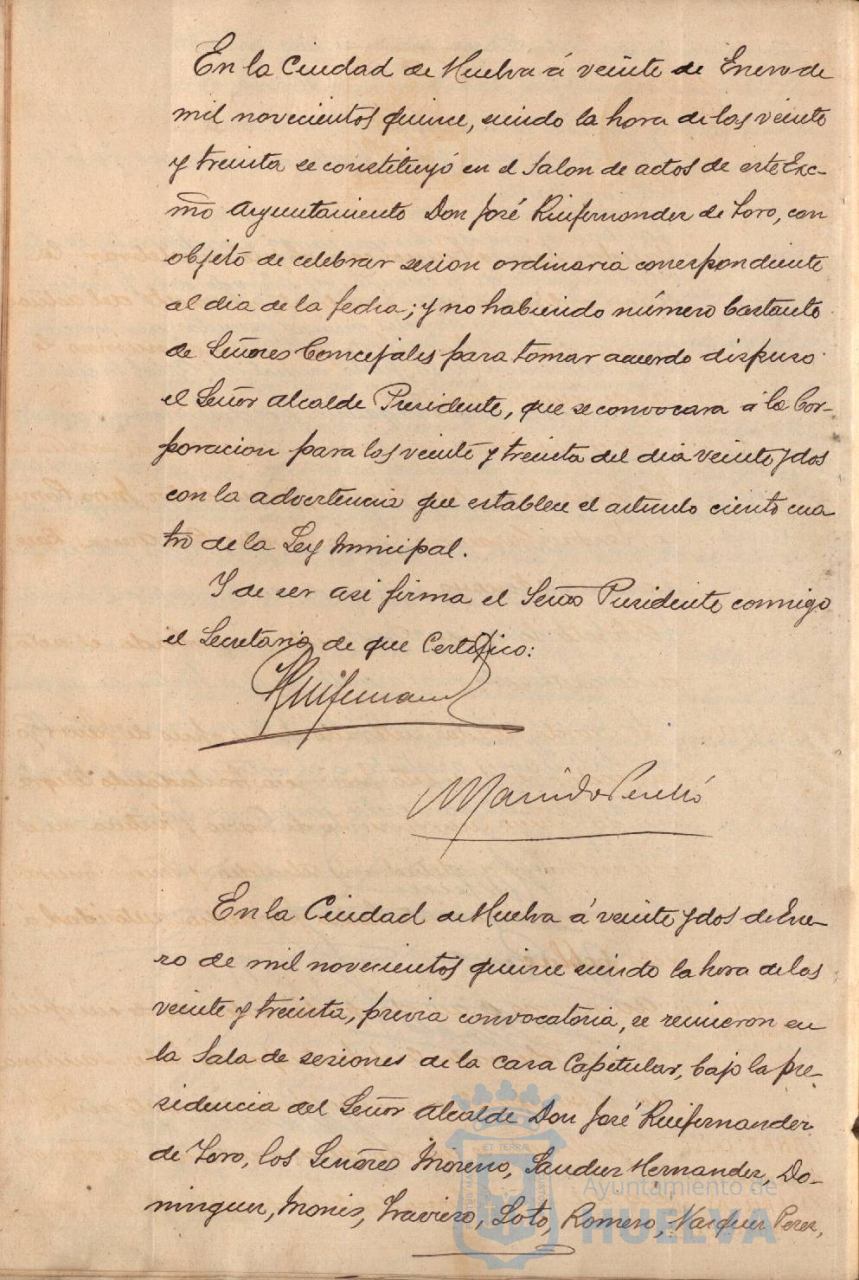 En la Ciudad de Huelva á veinte de Enero de
mil novecientos quince, siendo la hora de las veinte
y treinta se constituyó en el Salon de actos de este Exc-
mo Ayuntamiento Don José Ruifernandez de Toro, con
objeto de celebrar sesion ordinaria correspondiente
al dia de la fecha; y no habiendo número bastante
de Señores Concejales para tomar acuerdo dispuso
el Señor Alcalde Presidente, que se convocara á la Cor-
poracion para las veinte y treinta del dia veinte y dos
con la advertencia que establece el articulo ciento cua
tro de la Ley Municipal.
Y de ser asi firma el Señor Presidente conmigo
el Secretario de que Certifico:
En la Ciudad de Huelva á veinte y dos de Ene-
ro de mil novecientos quince siendo la hora de las
veinte y treinta, previa convocatoria, se reunieron en
la Sala de sesiones de la casa Capitular, bajo la pre-
sidencia del Señor Alcalde Don José Ruifernandez
de Toro, los Señores Moreno, Sanchez Hernandez, Do-
minguez, Mones, Traviero, Soto, Romero, Vazquez Perez,
Ayuntamiento de
HUELVA